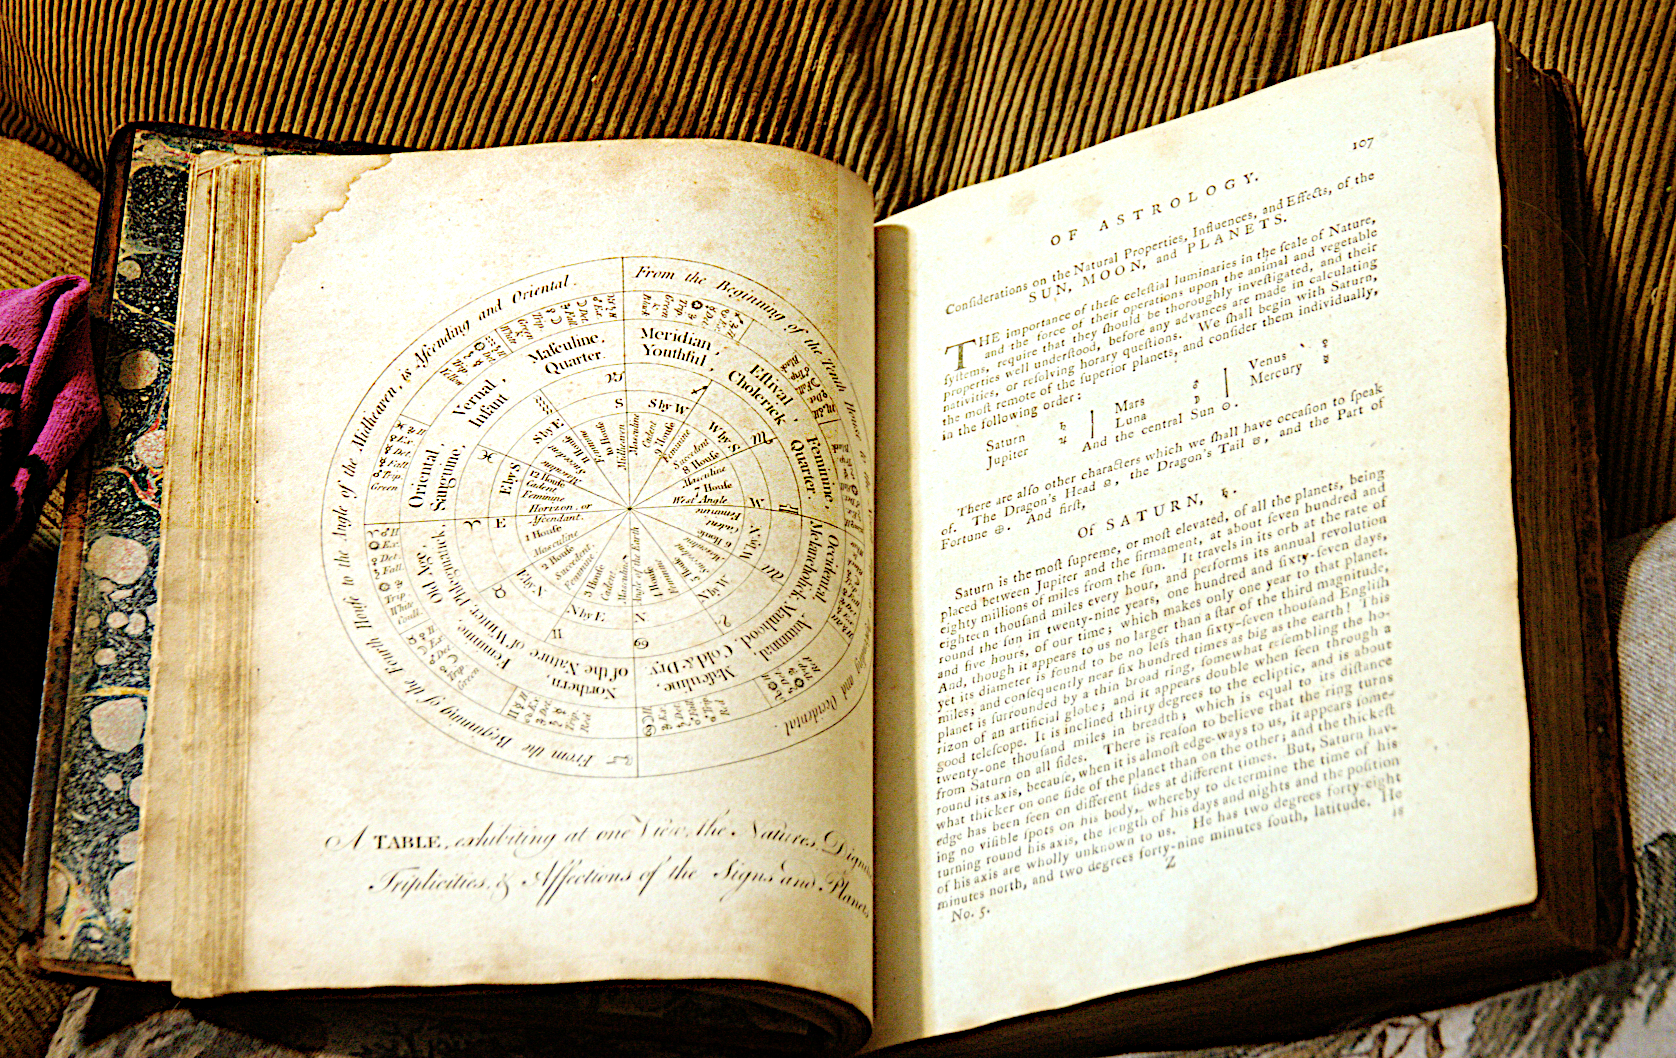 From the Beginning of the Tenth House
is Ascending and Oriental.
to the Angle of the Midheaven,
From the Beginning of the Fourth House
and Occidental.
Meridian,
Youthful,
Estival,
Cholerick
Feminine,
Quarter.
Occidental,
Melancholick,
Manhood,
Autumnal,
Cold & Dry.
Masculine,
Northern,
of the Nature
of Winter,
Feminine,
Phlegmatick.
Old Age.
Oriental,
Sanguine,
Vernal,
Infant
Masculine,
Quarter.
♑
♐
♏
♓
♈
♉
♊
♋
♌
♍
S
S by W.
W by S.
W
W by N.
N by W.
N
N by E.
E
E by S.
S by E.
Midheaven
10 House
Feminine
Masculine
Cadent
9 House
Feminine
Succedent
8 House
Masculine
7 House
West Angle
Feminine
Cadent
6 House
Angle of the Earth
3 House
Cadent
Masculine
2 House
Succedent
Feminine
1 House
Masculine
Horizon, or
Ascendant.
12 House
Cadent
Feminine
A TABLE, exhibiting at one View, the Natures, Dign
Triplicities, & Affections of the Signs and Planets
107
OF ASTROLOGY.
Conſiderations on the Natural Properties, Influences, and Effects, of the
SUN, MOON, and PLANETS.
THE importance of theſe celeſtial luminaries in the ſcale of Nature,
and the force of their operations upon the animal and vegetable
ſyſtems, require that they ſhould be thoroughly inveſtigated, and their
properties well underſtood, before any advances are made in calculating
nativities, or reſolving horary queſtions. We ſhall begin with Saturn,
the moſt remote of the ſuperior planets, and conſider them individually,
in the following order:
Saturn ♄ | Mars ♂ | Venus ♀
Jupiter ♃ | Luna ☽ | Mercury ☿
And the central Sun ☉.
There are alſo other characters which we ſhall have occaſion to ſpeak
of. The Dragon's Head ☊, the Dragon's Tail ☋, and the Part of
Fortune ⊕. And firſt,
Of SATURN, ♄.
Saturn is the moſt ſupreme, or moſt elevated, of all the planets, being
placed between Jupiter and the firmament, at about ſeven hundred and
eighty millions of miles from the ſun. It travels in its orb at the rate of
eighteen thouſand miles every hour, and performs its annual revolution
round the ſun in twenty-nine years, one hundred and ſixty-ſeven days,
and five hours, of our time; which makes only one year to that planet.
And, though it appears to us no larger than a ſtar of the third magnitude,
yet its diameter is found to be no leſs than ſixty-ſeven thouſand Engliſh
miles; and conſequently near ſix hundred times as big as the earth! This
planet is ſurrounded by a thin broad ring, ſomewhat reſembling the ho-
rizon of an artificial globe; and it appears double when ſeen through a
good teleſcope. It is inclined thirty degrees to the ecliptic, and is about
twenty-one thouſand miles in breadth; which is equal to its diſtance
from Saturn on all ſides. There is reaſon to believe that the ring turns
round its axis, becauſe, when it is almoſt edge-ways to us, it appears ſome-
what thicker on one ſide of the planet than on the other; and the thickeſt
edge has been ſeen on different ſides at different times. But, Saturn hav-
ing no viſible ſpots on his body, whereby to determine the time of his
turning round his axis, the length of his days and nights and the poſition
of his axis are wholly unknown to us. He has two degrees forty-eight
minutes north, and two degrees forty-nine minutes ſouth, latitude. He
No. 5. Z is